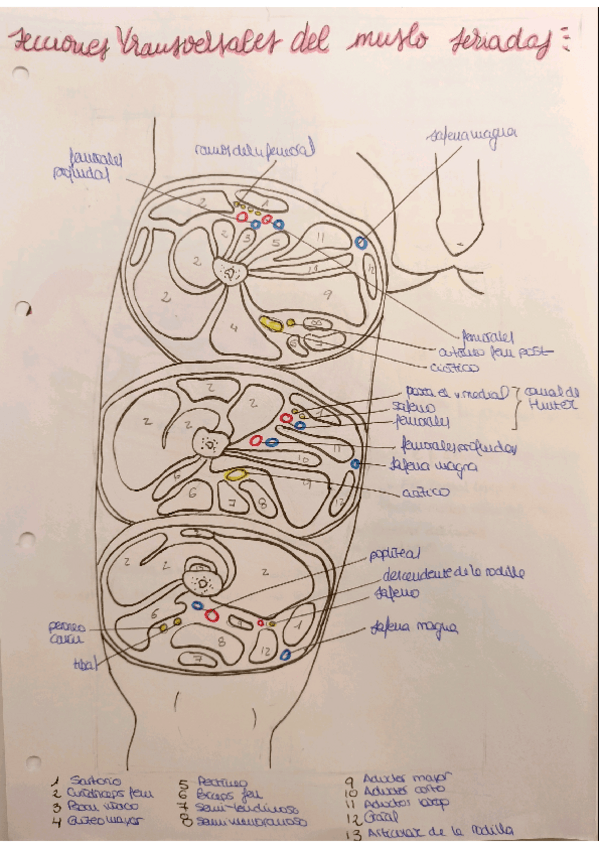 Secciones Transversales del muslo seriadas:
safena magna
ramos del n femoral
femorales
profundas
1
2
2 3 5 11
2
11 12
2
9
4
8
6 7
femorales
cutáneo fem post
ciático
para el v. medial
safeno
femorales
canal de
Hunter
2
2 2 1
11
femorales profundos
10
safena magna
6 9
ciático
6 7 8 12
2 2 2
13
popliteal
descendente de la rodilla
safeno
6
1
peroneo
safena magna
8
12
tibial
7
1 Sartorio
2 Cuádriceps fem
3 Psoas iliaco
4 Glúteo mayor
5 Pectíneo
6 Bíceps fem
7 Semi-tendinoso
8 Semimembranoso
9 Aductor mayor
10 Aductor corto
11 Aductor largo
12 Grácil
13 Articular de la rodilla